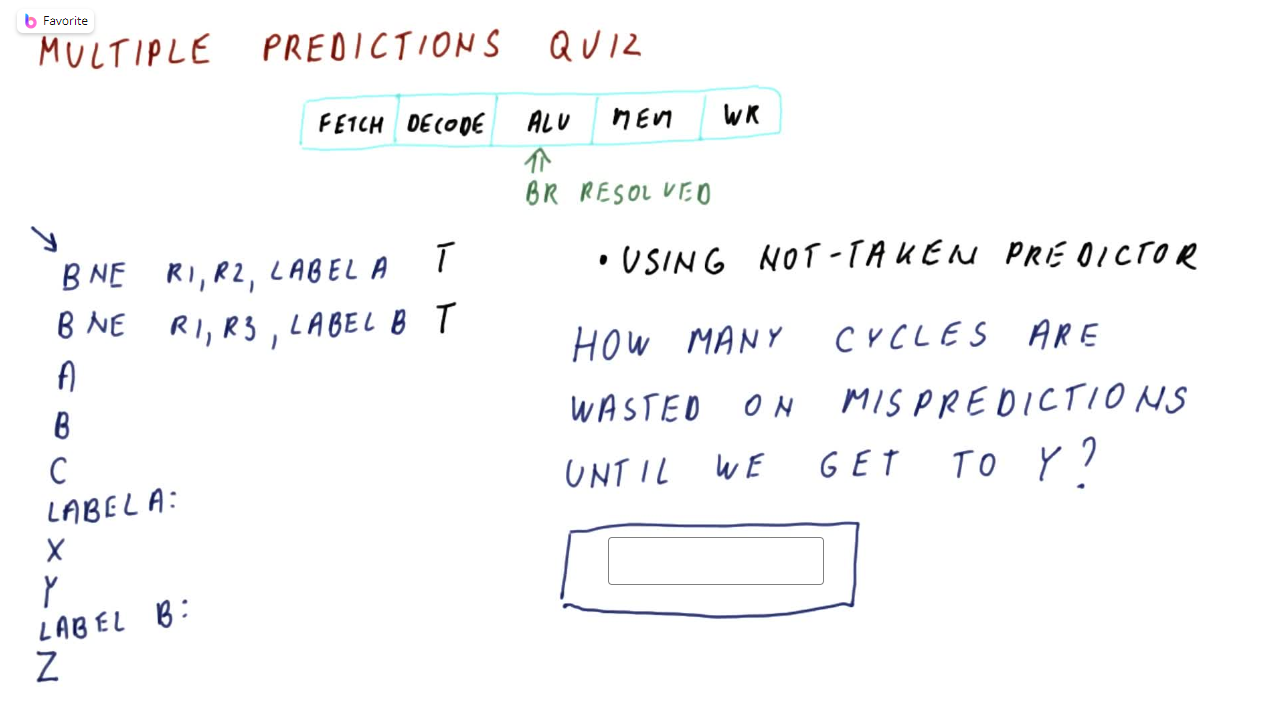 Favorite
MULTIPLE PREDICTIONS QUIZ
FETCH DECODE ALU MEM WR
BR RESOLVED
BNE R1, R2, LABEL A T
BNE R1, R3, LABEL B T
A
B
C
LABEL A:
X
Y
LABEL B:
Z
• USING NOT-TAKEN PREDICTOR
HOW MANY CYCLES ARE
WASTED ON MISPREDICTIONS
UNTIL WE GET TO Y?